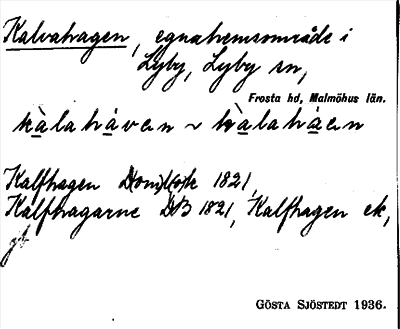 Kalvahagen, egnahemsområde i
Lyby, Lyby sn,
Frosta hd, Malmöhus län.
kàlahàven ~ kàlahàen
Kalfhagen Domb 1821,
Kalfhagarne DB 1821, Kalfhagen ek,
gb
GÖSTA SJÖSTEDT 1936.